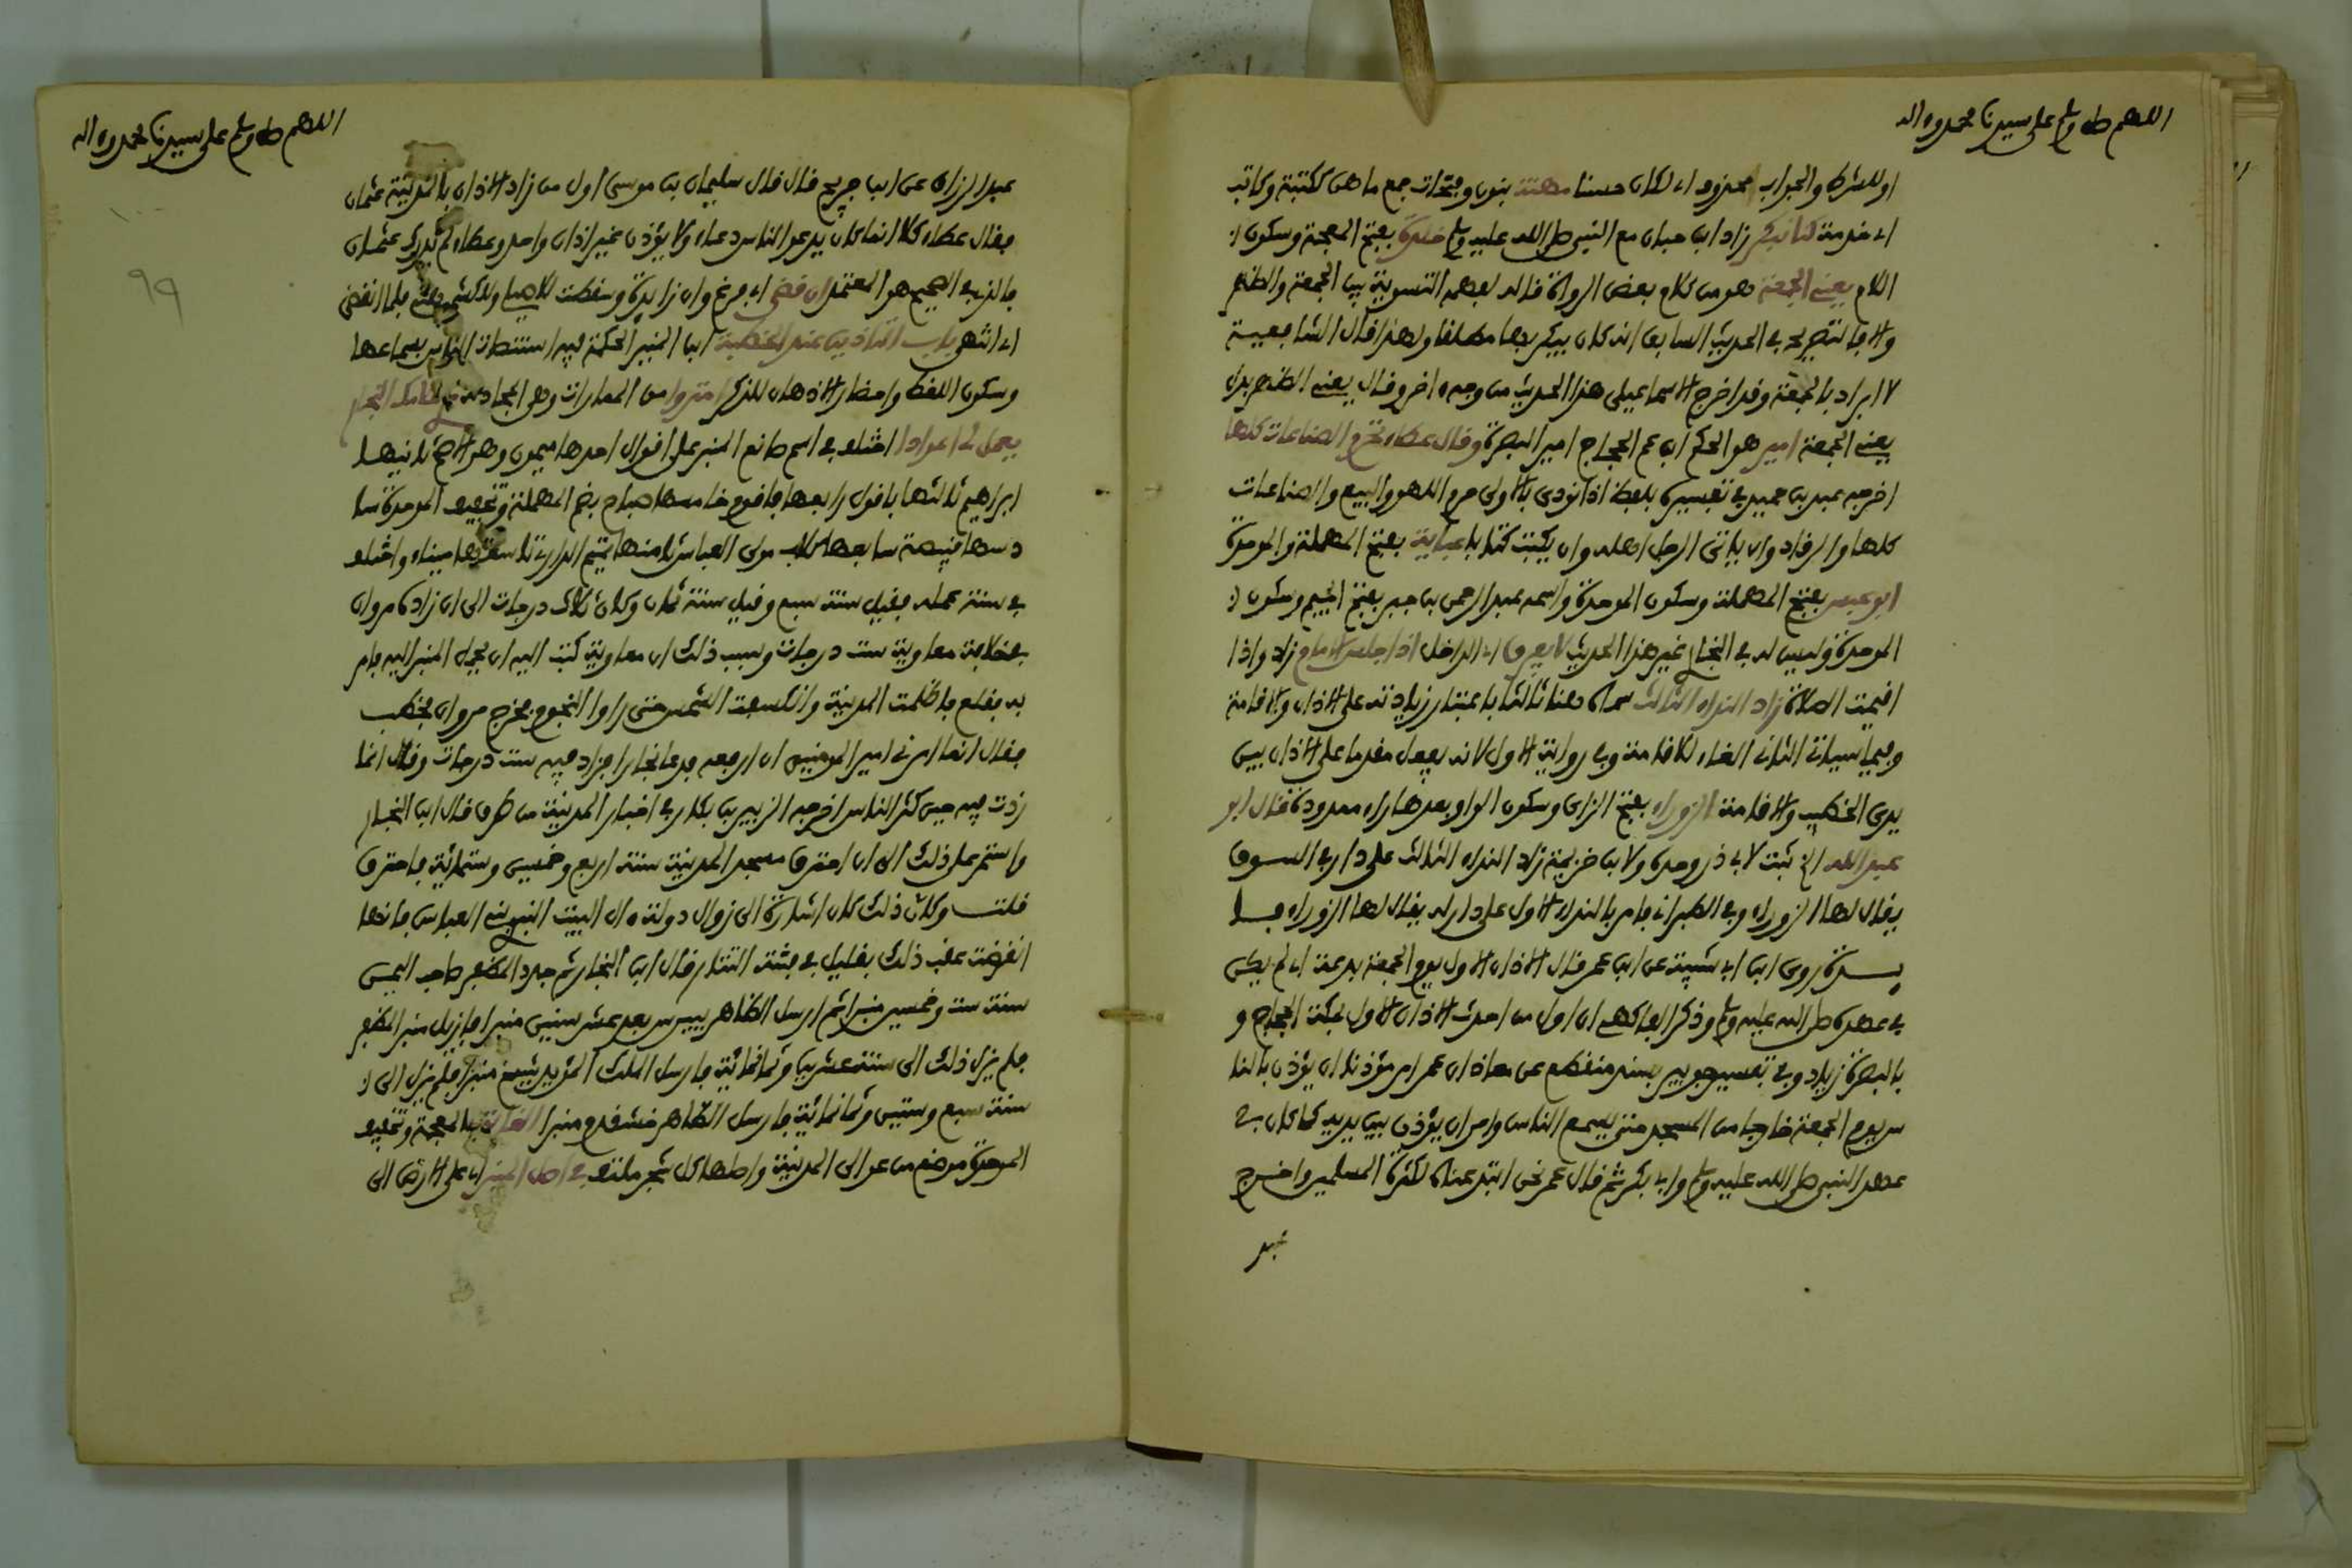 اللهم صل وسلم على سيدنا محمد وءاله
او للشرط والجواب محذوف اي لكان حسنا مهنة بنون وفتحات جمع ماهن ككتبة وكاتب
اي خدمة زاد ابن حبان مع النبي صلى الله عليه وسلم بفتح المعجمة وسكون
اللام يعني الجمعة هو من كلام بعض الرواة قاله لفهمه التسوية بين الجمعة والظهر
والا فالتصريح في الحديث السابق انه كان يبكر بها مطلقا ولهذا قال الشافعية
لا ابراد بالجمعة وقد اخرج الاسماعيلي هذا الحديث من وجه ءاخر وقال يعني الظهر بدل
يعني الجمعة امير هو الحكم ابن عم الحجاج امير البصرة وقال عطاء تحرم الصناعات كلها
اخرجه عبد بن حميد في تفسيره بلفظ اذا نودي بالاولى حرم اللهو والبيع والصناعات
كلها والرقاد وان ياتي الرجل اهله وان يكتب كتابا عباية بفتح المهملة والموحدة
ابو عبس بفتح المهملة وسكون الموحدة واسمه عبد الرحمن بن جبر بفتح الجيم وسكون
الموحدة وليس له في البخاري غير هذا الحديث لا يفرق اي الداخل اذا جلس الامام زاد واذا
اقيمت الصلاة زاد النداء الثالث سماه هنا ثالثا باعتبار زيادته على الاذان والاقامة
وفيما سياتي الثاني الغاء للاقامة وفي رواية الاول لانه يفعل مقدما على الاذان بين
يدي الخطيب والاقامة الزوراء بفتح الزاي وسكون الواو بعدها راء ممدودة قال ابو
عبد الله الخ ثبت لابي ذر وحده ولابن خزيمة زاد النداء الثالث على دار في السوق
يقال لها الزوراء وفي الطبراني فامر بالنداء الاول على دار له يقال لها الزوراء فا
يدة روى ابن ابي شيبة عن ابن عمر قال الاذان الاول يوم الجمعة بدعة اي لم يكن
في عهده صلى الله عليه وسلم وذكر الفاكهي ان اول من احدث الاذان الاول بمكة الحجاج و
بالبصرة زياد وفي تفسير جويبر بسند منقطع عن معاذ ان عمر امر مؤذنا ان يؤذن بالنا
س يوم الجمعة خارجا من المسجد حتى يسمع الناس وامر ان يؤذن بين يديه كما كان في
عهد النبي صلى الله عليه وسلم وابي بكر ثم قال عمر نحن ابتدعناه لكثرة المسلمين واخرج
عبد
اللهم صل وسلم على سيدنا محمد وءاله
عبد الرزاق عن ابن جريج قال قال سليمان بن موسى اول من زاد الاذان بالمدينة عثمان
فقال عطاء كلا انما كان يدعو الناس دعاء ولا يؤذن غير اذان واحد وعطاء لم يدرك عثمان
فالذي في الصحيح هو المعتمد ان قضى اي فرغ وان زايدة وسقطت للاصيلي وللكشميهني فلما انقضى
اي انتهى باب التاذين عند الخطبة ابن المنير الحكمة فيه استنصات الناس بسماعها
وسكون اللغط واحضار الاذهان للذكر امتروا من المماراة وهي المجادلة النجار
يعمل لي اعوادا اختلف في اسم صانع المنبر على اقوال احدها ميمون وهو الاصح ثانيها
ابراهيم ثالثها باقول رابعها باقوم خامسها صباح بضم المهملة وتخفيف الموحدة سا
دسها قبيصة سابعها كلاب مولى العباس ثامنها تميم الداري تاسعها ميناء واختلف
في سنة عمله فقيل سنة سبع وقيل سنة ثمان وكان ثلاث درجات الى ان زاده مروان
في خلافة معاوية ست درجات وسبب ذلك ان معاوية كتب اليه ان يحمل المنبر اليه فامر
به فقلع فاظلمت المدينة وانكسفت الشمس حتى راوا النجوم فخرج مروان فخطب
فقال انما امرني امير المومنين ان ارفعه فدعا نجارا فزاد فيه ست درجات وقال انما
زدت فيه حين كثر الناس اخرجه الزبير بن بكار في اخبار المدينة من طرق قال ابن النجار
واستمر على ذلك الى ان احترق مسجد المدينة سنة اربع وخمسين وستمائة فاحترق
قلت وكان ذلك كان اشارة الى زوال دولة ءال البيت النبوي بني العباس فانها
انقرضت عقب ذلك بقليل في فتنة التتار قال ابن النجار ثم جدد المظفر صاحب اليمن
سنة ست وخمسين منبرا ثم ارسل الظاهر بيبرس بعد عشر سنين منبرا فازيل منبر المظفر
فلم يزل ذلك الى سنة عشرين وثمانمائة فارسل الملك المؤيد شيخ منبرا فلم يزل الى
سنة سبع وستين وثمانمائة فارسل الظاهر خشقدم منبرا الغابة بالمعجمة وتخفيف
الموحدة موضع من عوالي المدينة واصلها كل شجر ملتف في اصل المنبر اي على الارض الى
٩٩